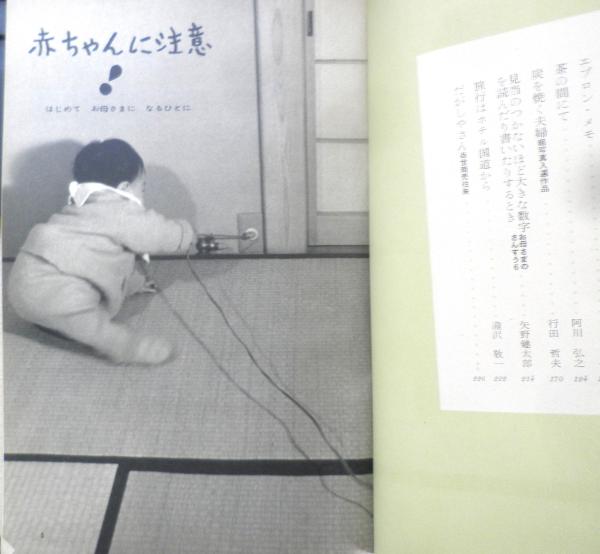 赤ちゃんに注意
!
はじめて お母さまに なるひとに
エプロン・メモ
茶の間にて 阿川 弘之 194
炭を焼く夫婦 組写真入選作品 行田 哲夫 170
見当のつかないほど大きな数字
を読んだり書いたりするとき お母さまのさんすう6 矢野健太郎 214
旅行はホテル国道から 滝沢 敬一 222
だがしやさん 当世商売往来 226